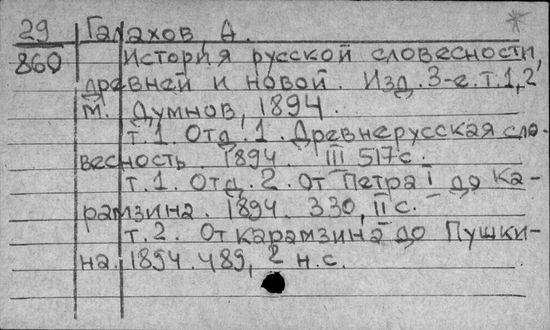 29 Галахов, А.
860 История русской словесности,
древней и новой. Изд. 3-е. т. 1, 2
М. Думнов, 1894.
т. 1. Отд. 1. Древнерусская сло-
весность. 1894. III 517 с.
т. 1. Отд. 2. От Петра I до Ка-
рамзина. 1894. 330, II с.
т. 2. От Карамзина до Пушки-
на. 1894. 489, 2 н.с.